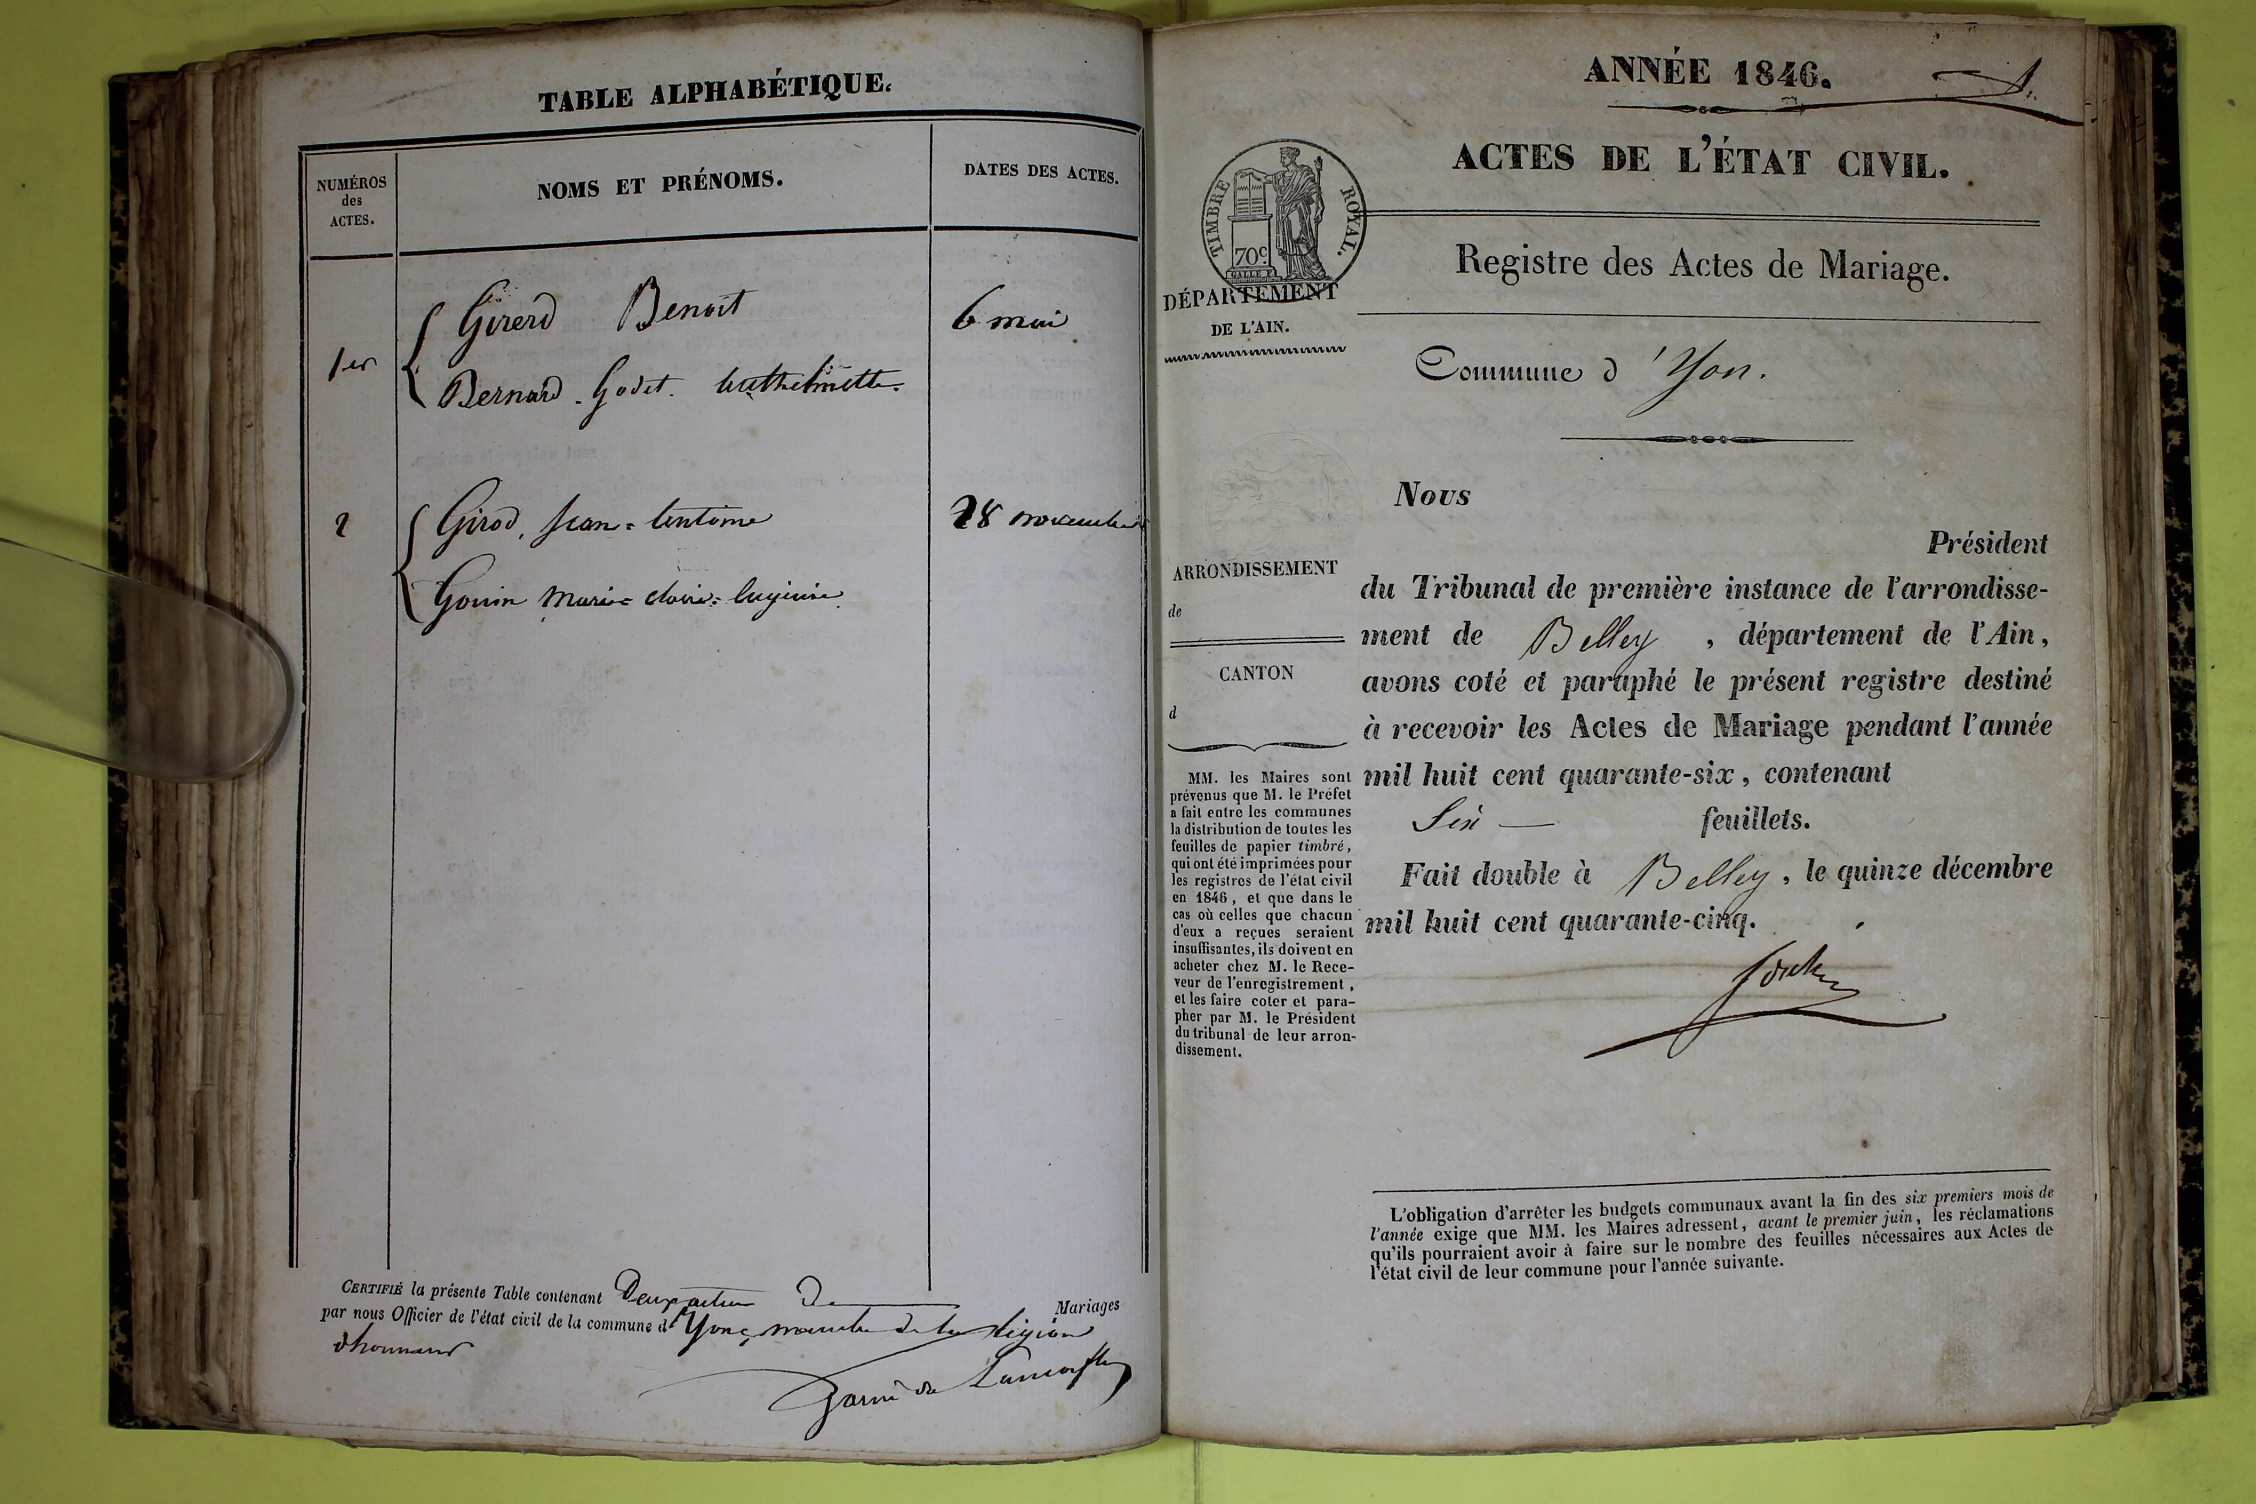 TABLE ALPHABÉTIQUE.
NUMÉROS
des
ACTES.
NOMS ET PRÉNOMS.
DATES DES ACTES.
1er
Girerd Benoit
6 mai
Bernard - Godet.
2
Girod, Jean = antoine
28 novembre
Gouin marie = claire =
CERTIFIÉ la présente Table contenant Deux actes De Mariages
par nous Officier de l'état civil de la commune d'Yon, membre de la légion
d'honneur
ANNÉE 1846.
ACTES DE L'ÉTAT CIVIL.
TIMBRE ROYAL.
70c
Registre des Actes de Mariage.
DÉPARTEMENT
DE L'AIN.
Commune d'Yon.
Nous
Président
ARRONDISSEMENT
de
CANTON
d
du Tribunal de première instance de l'arrondisse-
ment de Belley, département de l'Ain,
avons coté et paraphé le présent registre destiné
à recevoir les Actes de Mariage pendant l'année
mil huit cent quarante-six, contenant
Six — feuillets.
Fait double à Belley, le quinze décembre
mil huit cent quarante-cinq.
MM. les Maires sont
prévenus que M. le Préfet
a fait entre les communes
la distribution de toutes les
feuilles de papier timbré,
qui ont été imprimées pour
les registres de l'état civil
en 1846, et que dans le
cas où celles que chacun
d'eux a reçues seraient
insuffisantes, ils doivent en
acheter chez M. le Rece-
veur de l'enregistrement,
et les faire coter et para-
pher par M. le Président
du tribunal de leur arron-
dissement.
L'obligation d'arrêter les budgets communaux avant la fin des six premiers mois de
l'année exige que MM. les Maires adressent, avant le premier juin, les réclamations
qu'ils pourraient avoir à faire sur le nombre des feuilles nécessaires aux Actes de
l'état civil de leur commune pour l'année suivante.